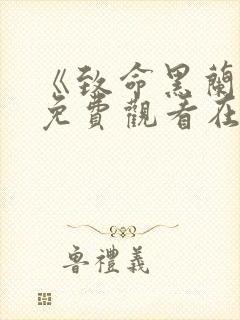 《致命黑蘭
免費觀看在
魯禮義